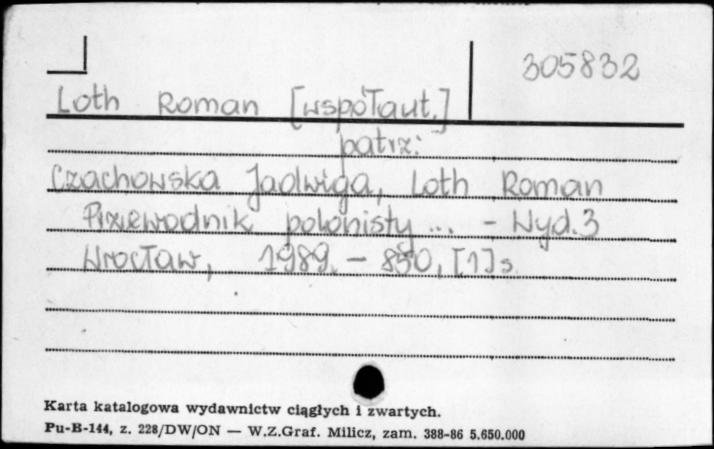 305832
Loth Roman [współaut.]
patrz:
Czachowska Jadwiga, Loth Roman
Przewodnik polonisty ... - Wyd. 3
Wrocław, 1989. - 850, [1] s.
Karta katalogowa wydawnictw ciągłych i zwartych.
Pu-B-144, z. 228/DW/ON — W.Z.Graf. Milicz, zam. 388-86 5.650.000